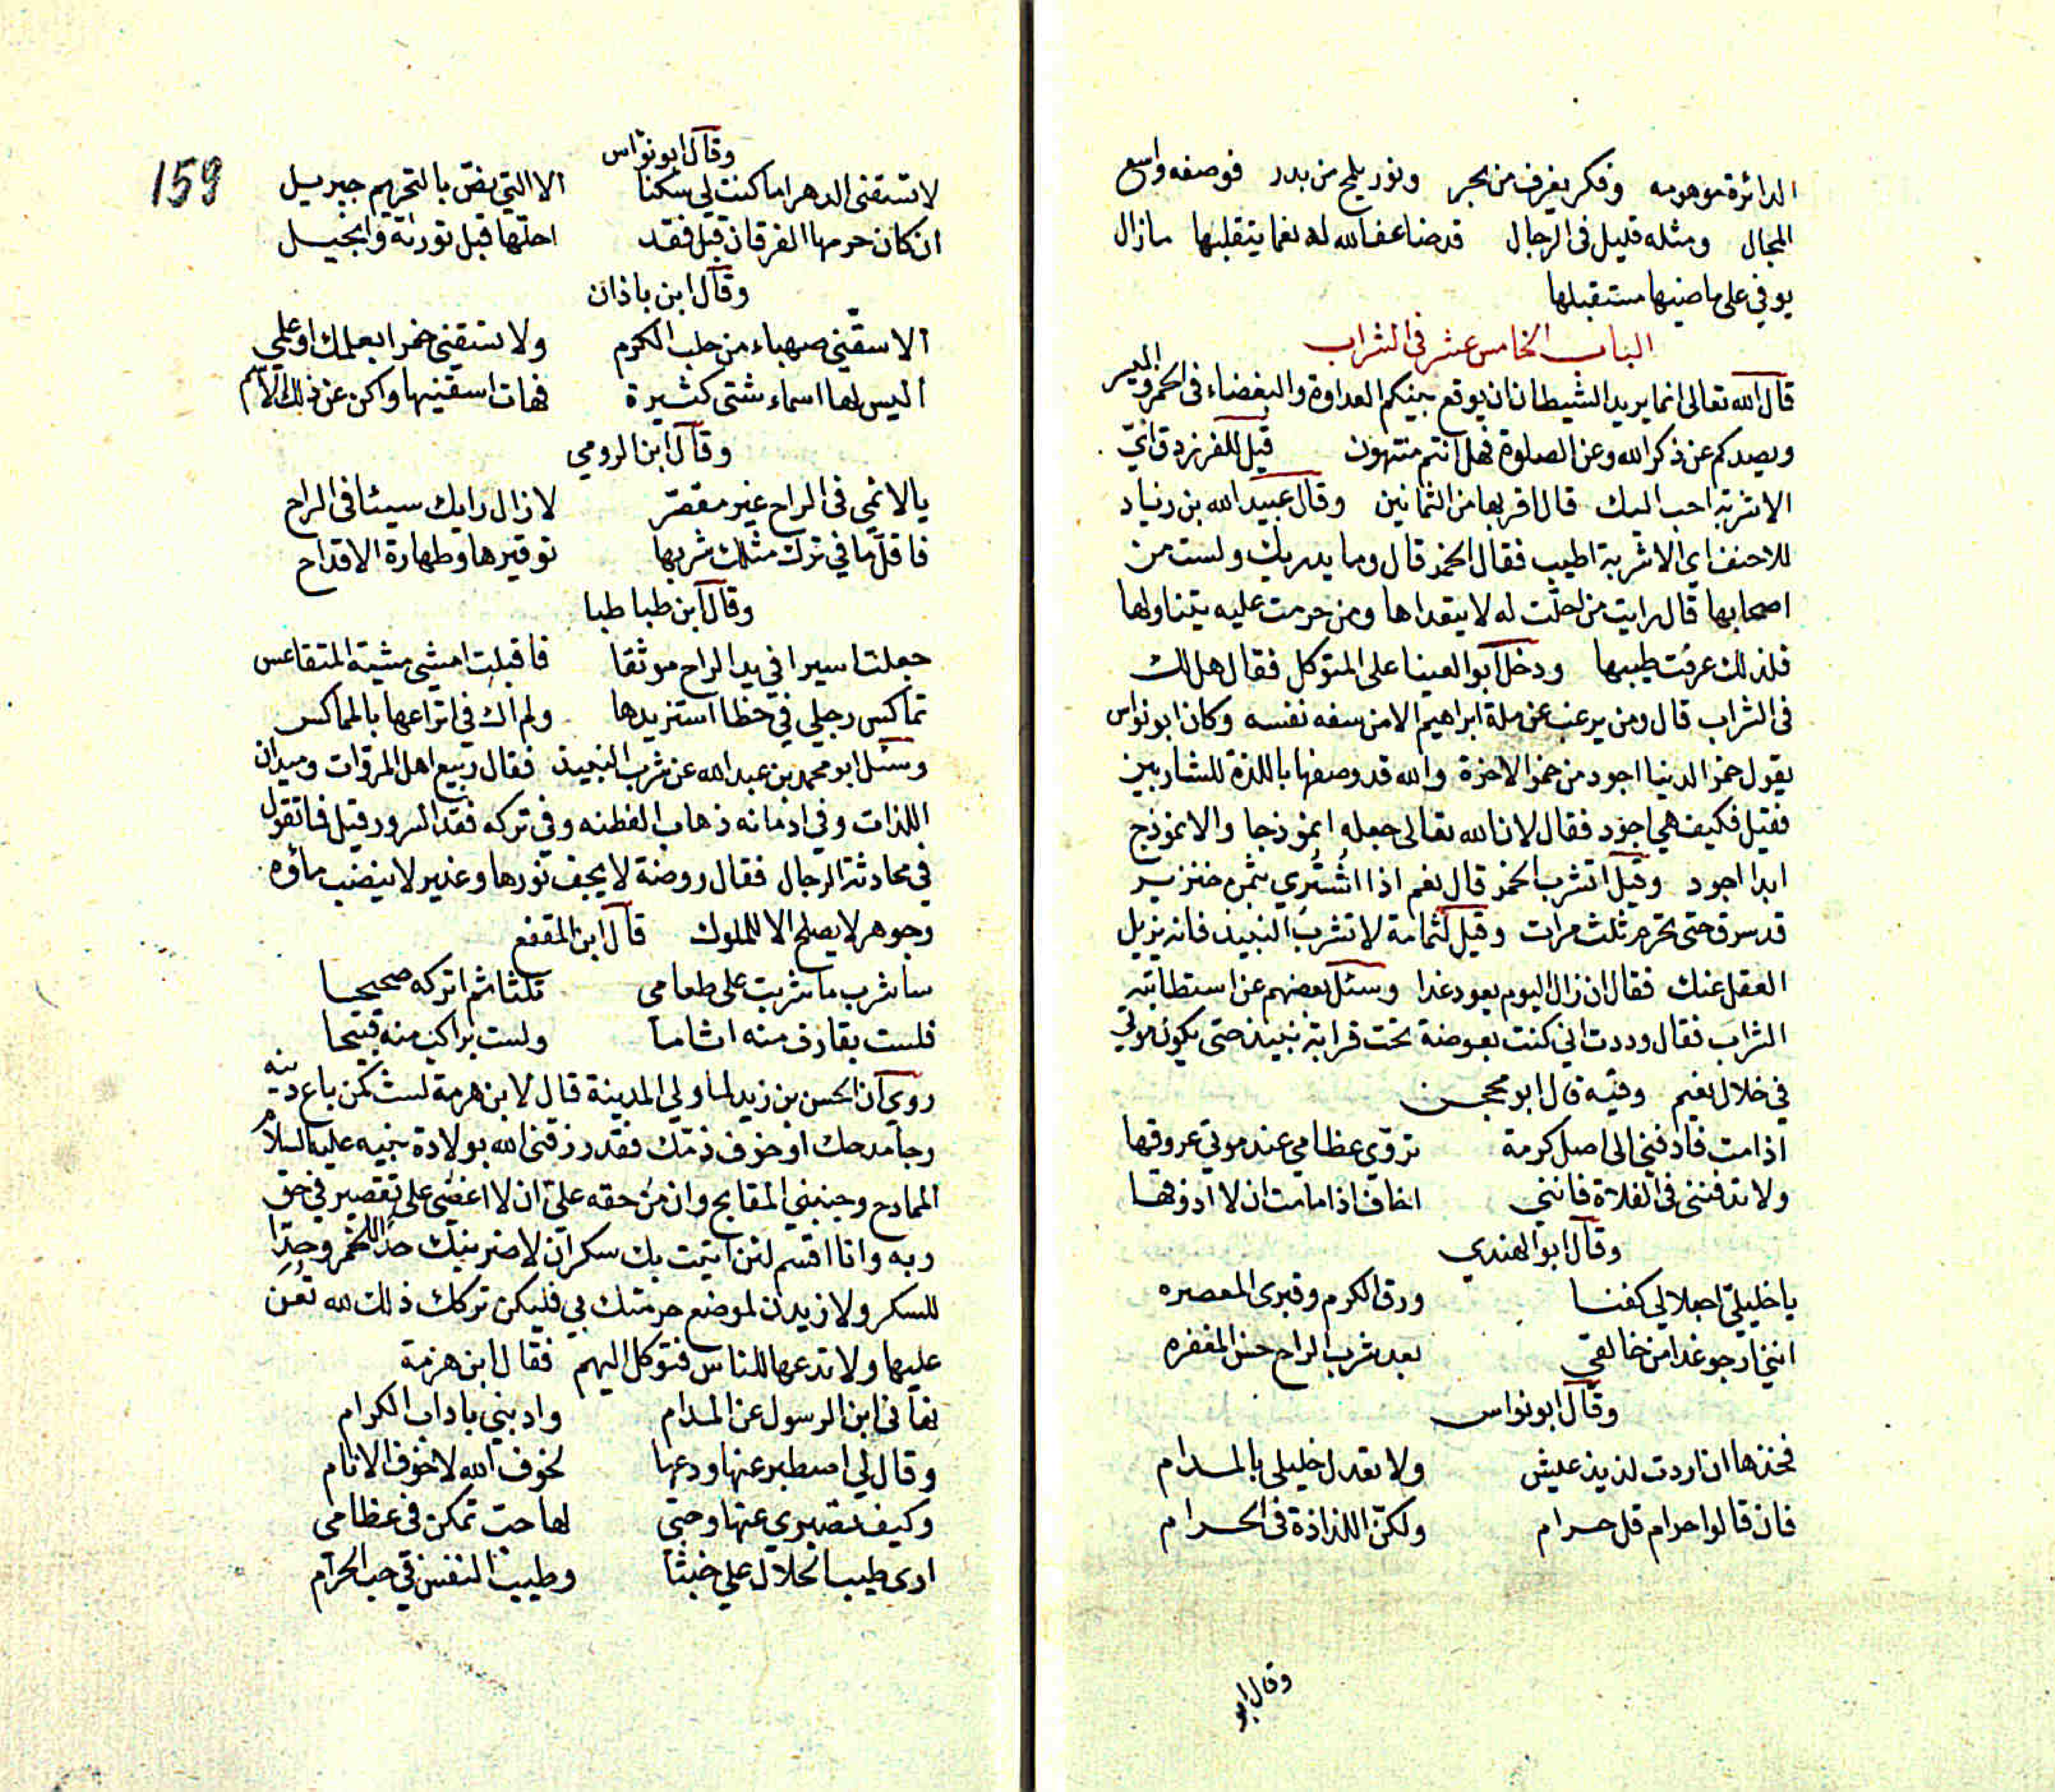 الدائرة موهومه وفكر يغرف من بحر ونور يلمح من بدر فوصفه واسع
المجال ومثله قليل فى الرجال قد ضاعف الله له نعما يتقلبها ما زال
يوفي على ماضيها مستقبلها
الباب الخامس عشر فى الشراب
قال الله تعالى انما يريد الشيطان ان يوقع بينكم العداوة والبغضاء فى الخمر والميسر
ويصدكم عن ذكر الله وعن الصلوة فهل انتم منتهون قيل للفرزدق ايّ
الاشربة احب اليك قال اقربها من الثمانين وقال عبيد الله بن زياد
للاحنف اي الاشربة اطيب فقال الخمر قال وما يدريك ولست من
اصحابها قال رايت من احلّت له لا يتعداها ومن حرمت عليه يتناولها
فلذلك عرفت طيبها ودخل ابو العينا على المتوكل فقال هل لك
فى الشراب قال ومن يرغب عن ملة ابراهيم الا من سفه نفسه وكان ابو نواس
يقول خمر الدنيا اجود من خمر الاخرة والله قد وصفها باللذة للشاربين
فقيل فكيف هي اجود فقال لان الله تعالى جعله انموذجا والانموذج
ابدا اجود وقيل اتشرب الخمر قال نعم اذا اشتُري بثمن خنزير
قد سرق حتى تحرم ثلث مرات وقيل لثمامة لا تشرب النبيذ فانه يزيل
العقل عنك فقال ان زال اليوم يعود غدا وسئل بعضهم عن استطابته
الشراب فقال وددت اني كنت بعوضة تحت قرابة نبيذ حتى يكون موتي
في خلال نعيم وفيه قال ابو محجن
اذا مت فادفني الى اصل كرمة تروّي عظامي عند موتي عروقها
ولا تدفنني فى الفلاة فانني اخاف اذا ما مت ان لا اذوقها
وقال ابو الهندي
يا خليليّ اجعلا لي كفنا ورق الكرم وقبرى المعصره
انني ارجو غدا من خالقي بعد شرب الراح حسن المغفره
وقال ابو نواس
فخذها ان اردت لذيذ عيش ولا تعدل خليلى بالمدام
فان قالوا حرام قل حرام ولكنّ اللذاذة فى الحرام
وقال ابو
159
وقال ابو نواس
لا تسقنى الدهر اما كنت لي سكنا الا التي نصّ بالتحريم جبريل
ان كان حرمها الفرقان قبل فقد احلّها قبل توراة وانجيل
وقال ابن باذان
الا سقّني صهباء من حلب الكرم ولا تسقني خمرا بعلمك او علمي
اليس لها اسماء شتى كثيرة فهات اسقنيها واكن عن ذلك الاسم
وقال ابن الرومي
يا لائمي فى الراح غير مقصّر لا زال رايك سيئا فى الراح
فاقلّ ما في ترك مثلك شربها توقيرها وطهارة الاقداح
وقال ابن طبا طبا
جعلت اسيرا في يد الراح موثقا فاقبلت امشي مشية المتقاعس
تماكس رجلي في خطا استزيدها ولم اك في اتراعها بالمماكس
وسئل ابو محمد بن عبد الله عن شرب النبيذ فقال ربيع اهل المروات وميدان
اللذات وفي ادمانه ذهاب الفطنه وفي تركه فقد السرور قيل فما تقول
في محادثة الرجال فقال روضة لا يجف نورها وغدير لا ينضب ماؤه
وجوهر لا يصلح الا للملوك قال ابن المقفع
ساشرب ما شربت على طعامي ثلثا ثم اتركه صحيحا
فلست بقارف منه اثاما ولست براكب منه قبيحا
روي ان الحسن بن زيد لما ولي المدينة قال لابن هرمة لست كمن باع دينه
رجا مدحك او خوف ذمّك فقد رزقني الله بولادة نبيه عليه السلام
الممادح وجنبني المقابح وان من حقه عليّ ان لا اغضي على تقصير في حق
ربه وانا اقسم لئن اتيت بك سكران لاضربنّك حدّا للخمر وحدّا
للسكر ولازيدن لموضع حرمتك بي فليكن تركك ذلك لله تعن
عليها ولا تدعها للناس فتوكل اليهم فقال ابن هرمة
نهانى ابن الرسول عن المدام وادبني باداب الكرام
وقال لي اصطبر عنها ودعها لخوف الله لا خوف الانام
وكيف تصبري عنها وحبّي لها حب تمكن فى عظامي
ارى طيب الحلال علي خبثا وطيب النفس في حب الحرام